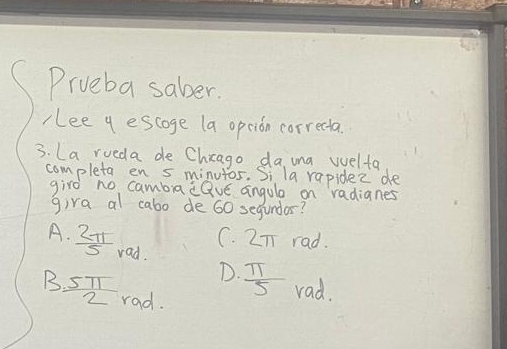 Prueba saber.
Lee y escoge la opción correcta.
3. La rueda de Chicago da una vuelta
completa en 5 minutos. Si la rapidez de
giro no cambia ¿Qué ángulo en radianes
gira al cabo de 60 segundos?
A. 2π/5 rad.
C. 2π rad.
B. 5π/2 rad.
D. π/5 rad.